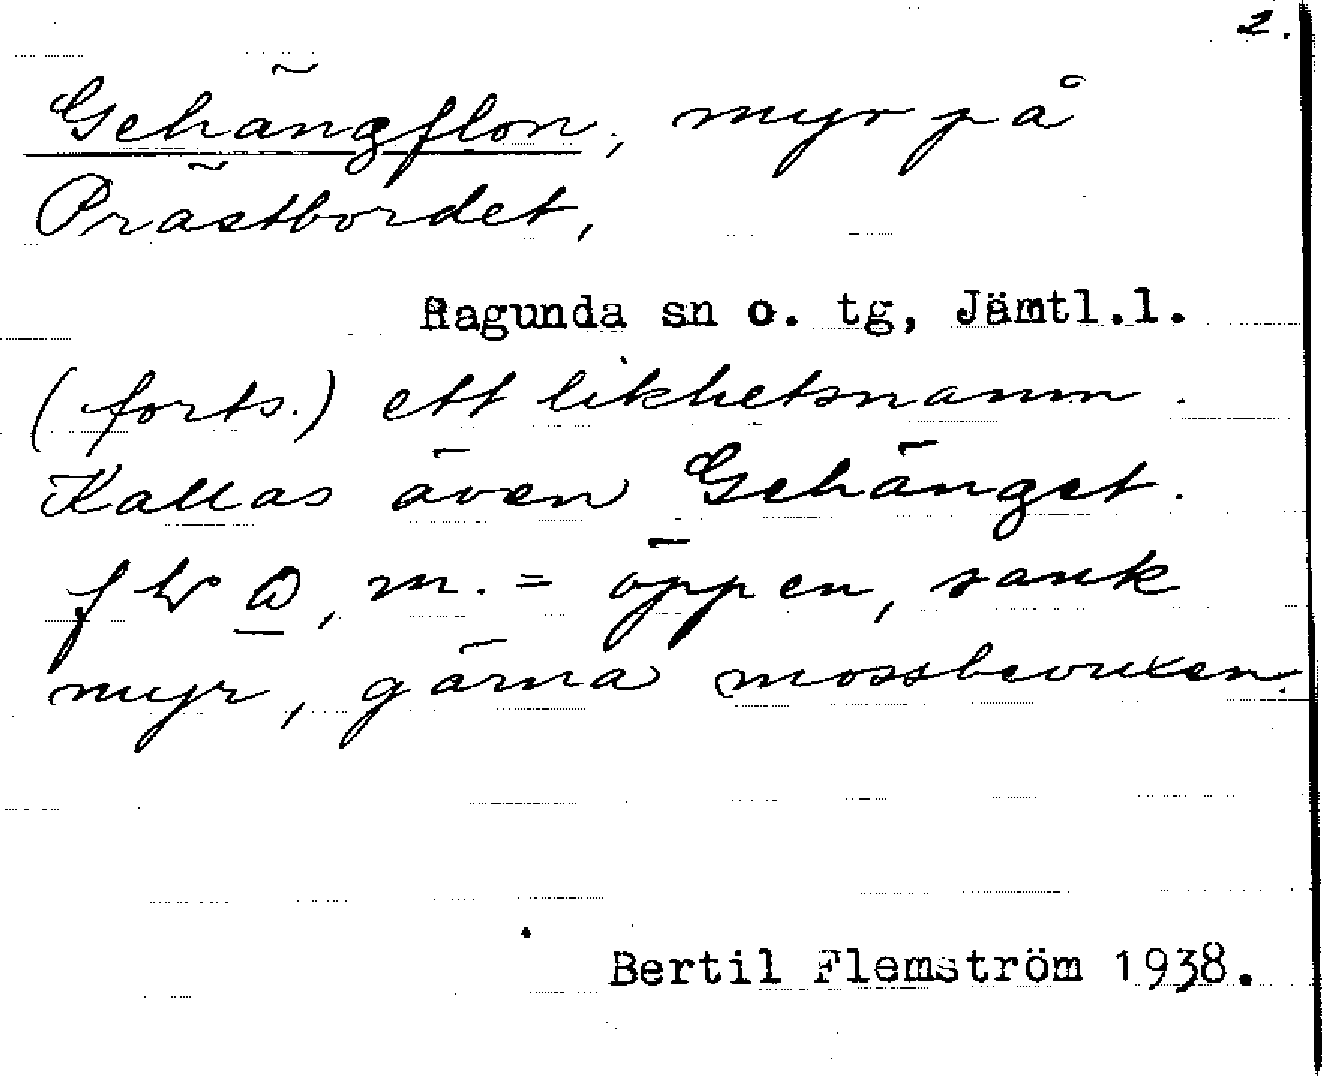 2.
Gehängflon, myr på
Prästbordet,
Ragunda sn o. tg, Jämtl.l.
(forts.) ett likhetsnamn.
Kallas även Gehänget.
m. = öppen, sank
myr, gärna mossbevuxen.
Bertil Flemström 1938.